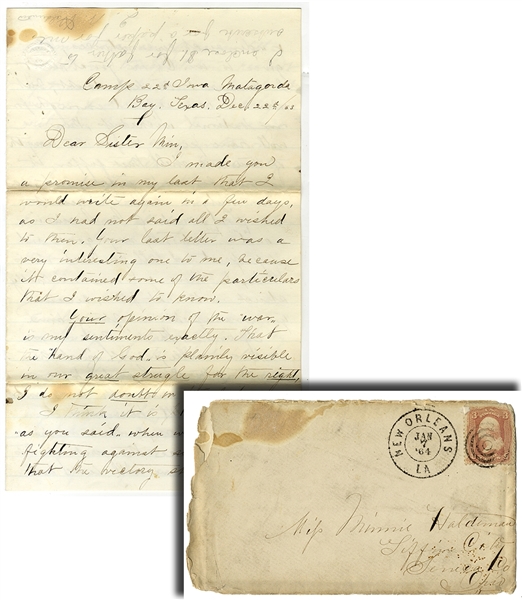 Camp 22d Iowa Matagorda
Bay, Texas. Dec. 22d 63
Dear Sister Min,
I made you
a promise in my last that I
would write again in a few days,
as I had not said all I wished
to then. Your last letter was a
very interesting one to me, because
it contained some of the particulars
that I wished to know.
Your opinion of the war
is my sentiments exactly. That
the hand of God is plainly visible
in our great struggle for the right,
I do not doubt
I think it is
as you said when
fighting against
that the victory
NEW ORLEANS
JAN
7
'64
LA
Miss Minnie Haldeman
Tiffin City
Seneca Co
Ohio